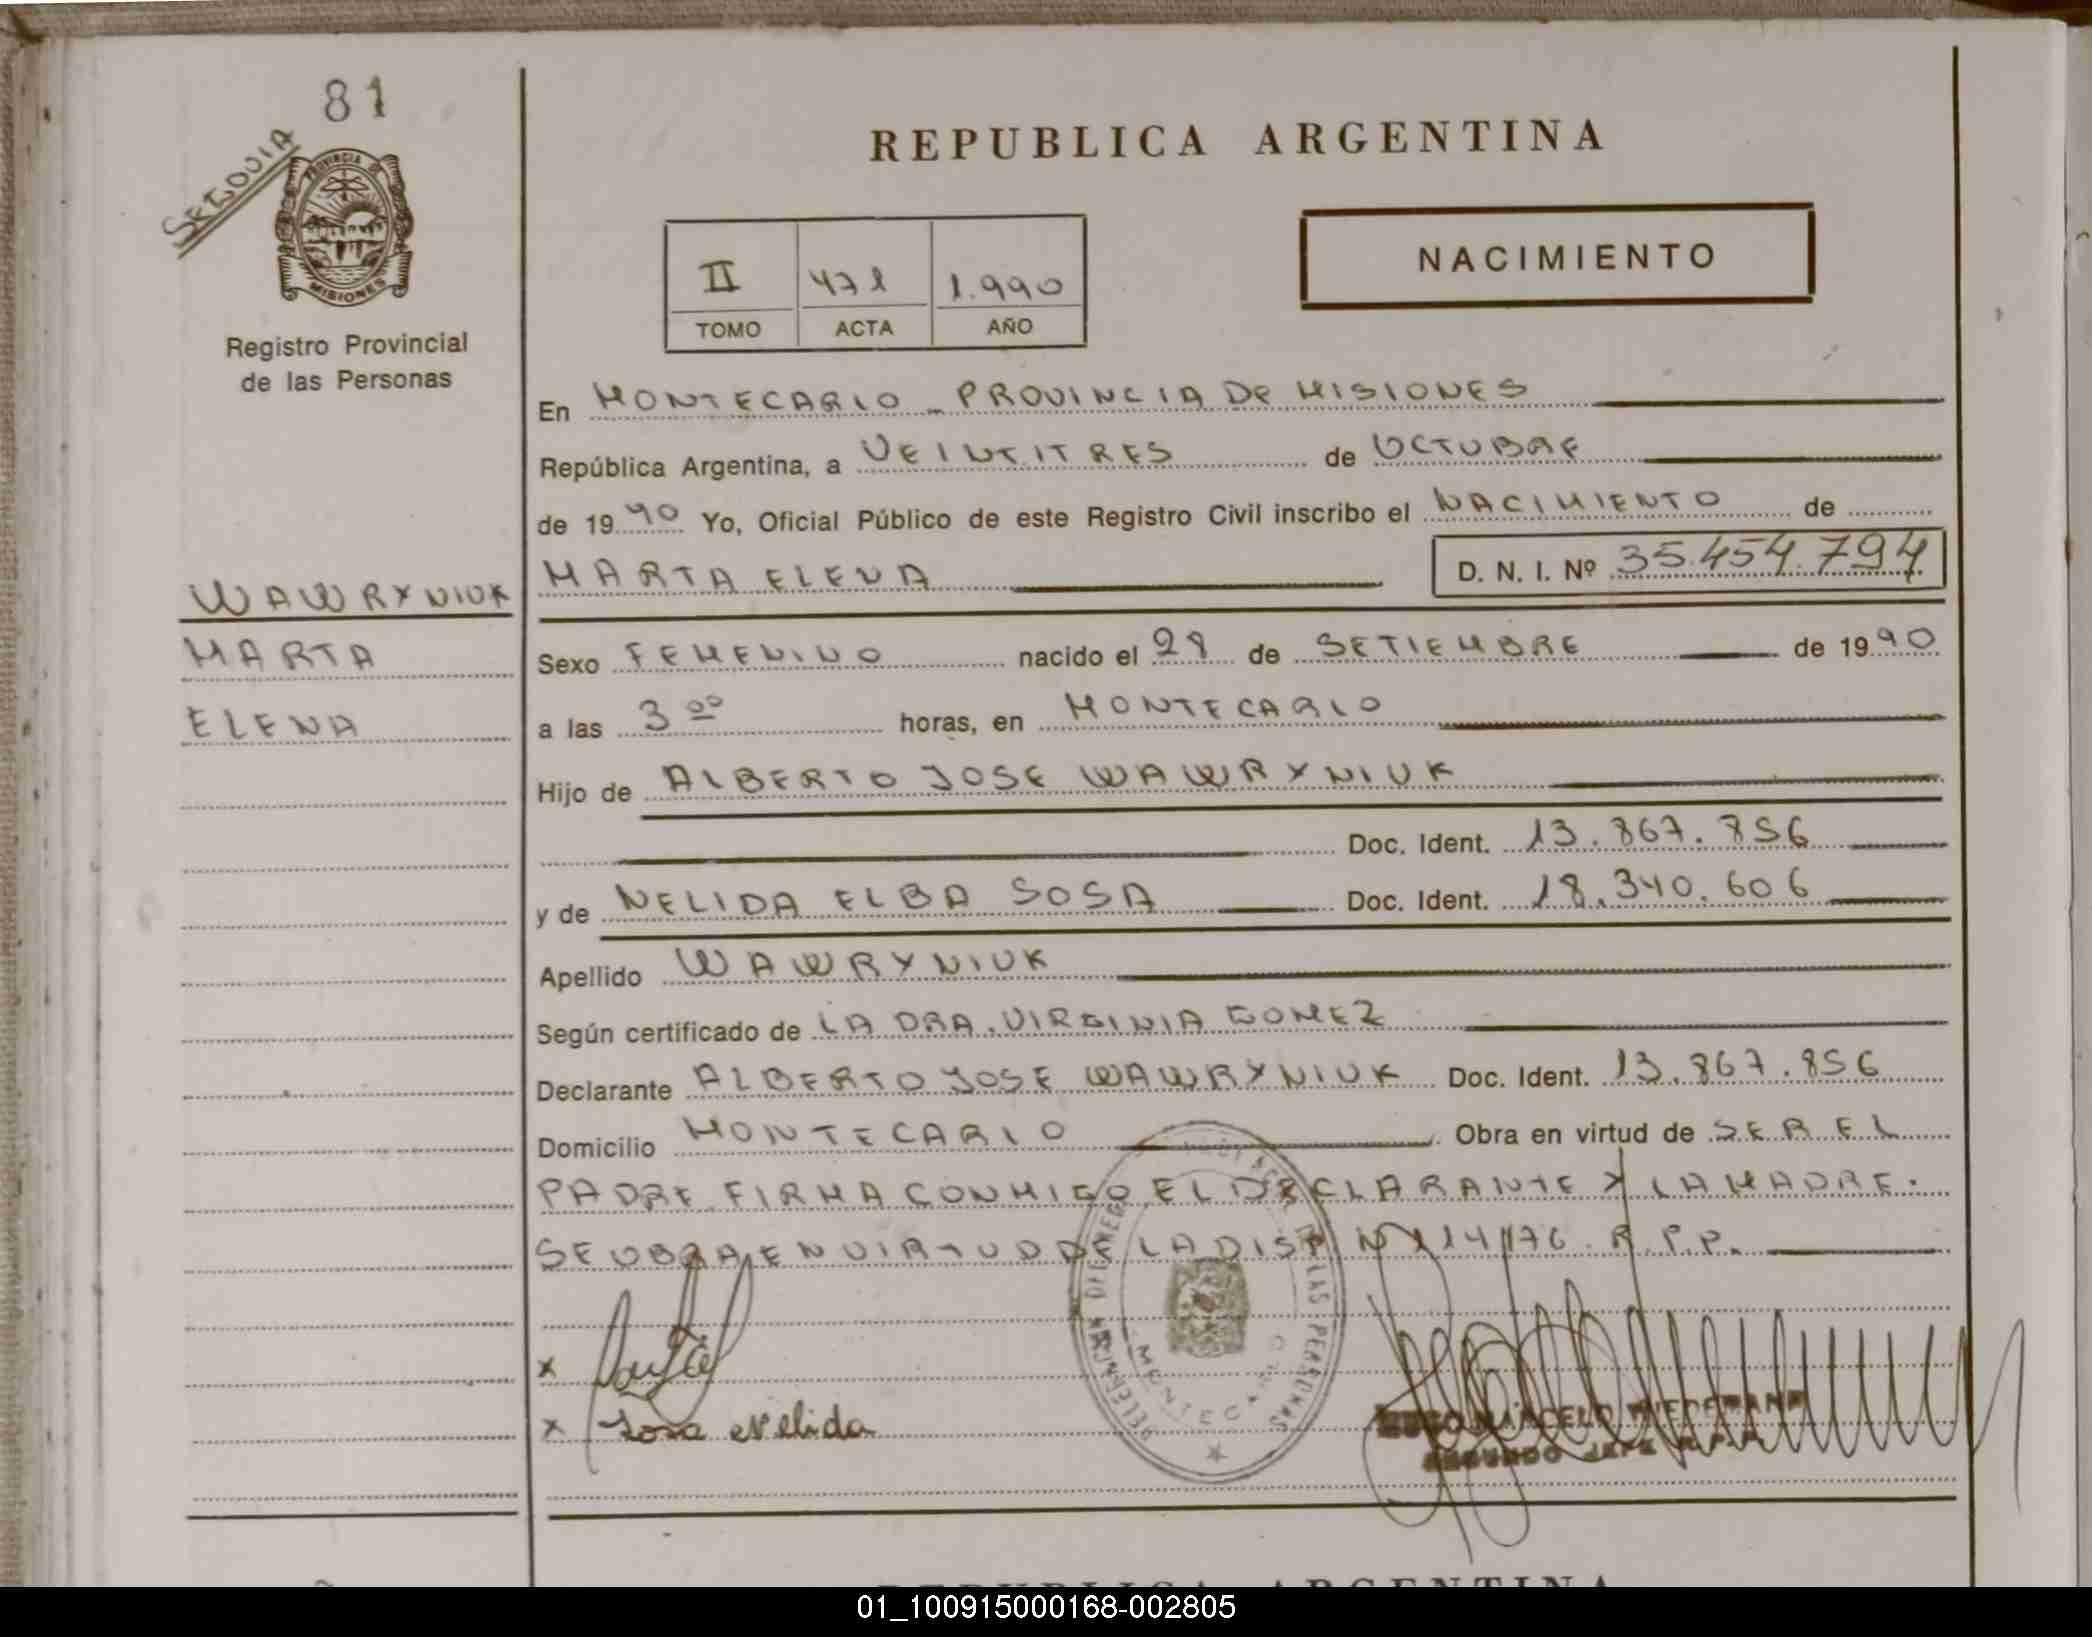 81
SEGOVIA
PROVINCIA DE
MISIONES
Registro Provincial
de las Personas
REPUBLICA ARGENTINA
II 471 1.990
TOMO ACTA AÑO
NACIMIENTO
En MONTECARLO - PROVINCIA DE MISIONES
República Argentina, a VEINTITRES de OCTUBRE
de 1990 Yo, Oficial Público de este Registro Civil inscribo el NACIMIENTO de
MARTA ELENA D. N. I. Nº 35.454.794
WAWRYNIUK
MARTA
ELENA
Sexo FEMENINO nacido el 28 de SETIEMBRE de 1990
a las 3 00 horas, en MONTECARLO
Hijo de ALBERTO JOSE WAWRYNIUK
Doc. Ident. 13.867.856
y de NELIDA ELBA SOSA Doc. Ident. 18.340.606
Apellido WAWRYNIUK
Según certificado de LA DRA. VIRGINIA GOMEZ
Declarante ALBERTO JOSE WAWRYNIUK Doc. Ident. 13.867.856
Domicilio MONTECARLO Obra en virtud de SER EL
PADRE FIRMA CONMIGO EL DECLARANTE Y LA MADRE.
SE OBRA EN VIRTUD DE LA DISP. Nº 114/76. R.P.P.
DEL REG. DE LAS PERSONAS
MONTECARLO
x
x Sosa Nelida
HUGO MARCELO WIEDEMANN
SEGUNDO JEFE R.P.P.
REPUBLICA ARGENTINA
01_100915000168-002805